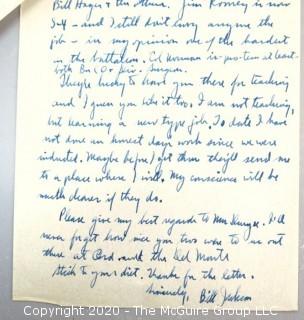 Bill Hager & the Album. Jim Romney is now
S-4 - and I still don't envy anyone the
job - in my opinion one of the hardest
in the battalion. Col Norman is pro-tem at least
both Bn CO & Div. Surgeon.
They're lucky to have you there for teaching
and I guess you like it too. I am not teaching,
but learning a new type job. To date I have
not done an honest days work since we were
inducted. Maybe before I get thru they'll send me
to a place where I will. My conscience will be
much clearer if they do.
Please give my best regards to Mrs. I'll
never forget how nice you two were to us out
there at Ord and the Del Monte
Stick to your diet. Thanks for the letter.
Sincerely, Bill Jackson
Copyright 2020 - Photography of the